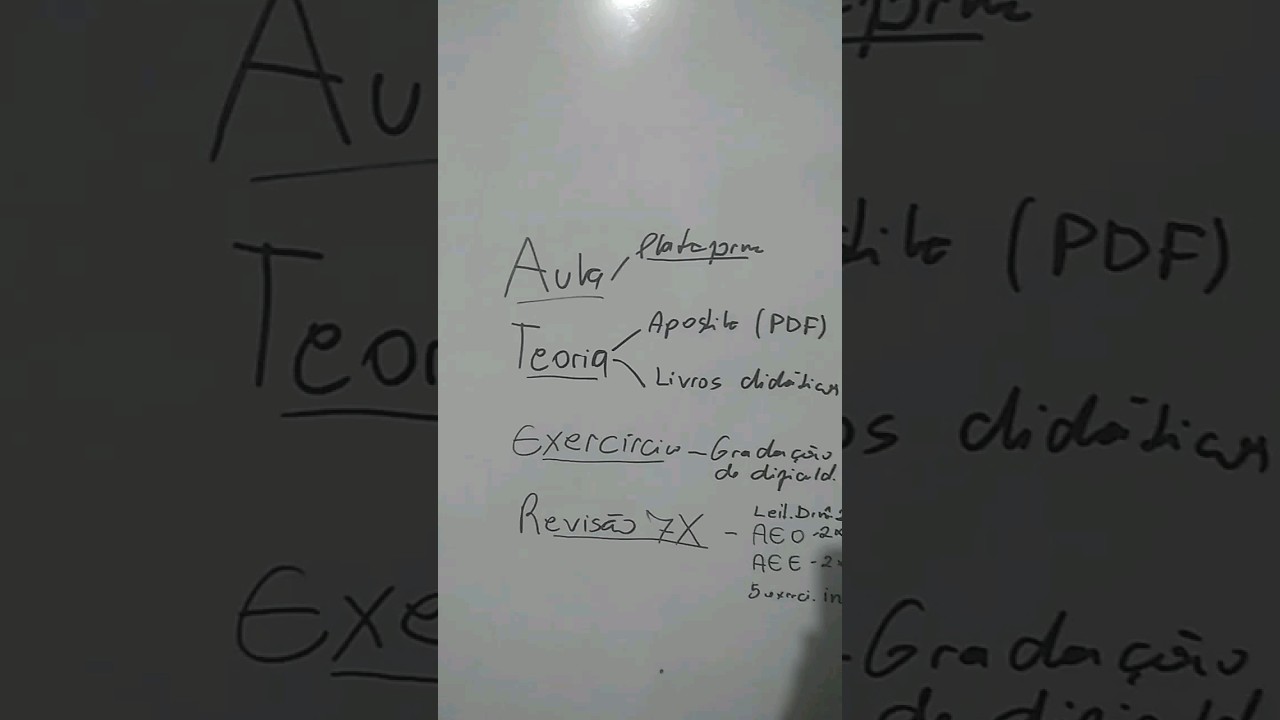 Aula / Plataforma
Teoria
Apostila (PDF)
Livros didáticos
Exercírcio - Gradação
de dificuld.
Revisão 7X -
Leit. Dinâ.
AEO - 2x
AEE - 2
5 exerci. in